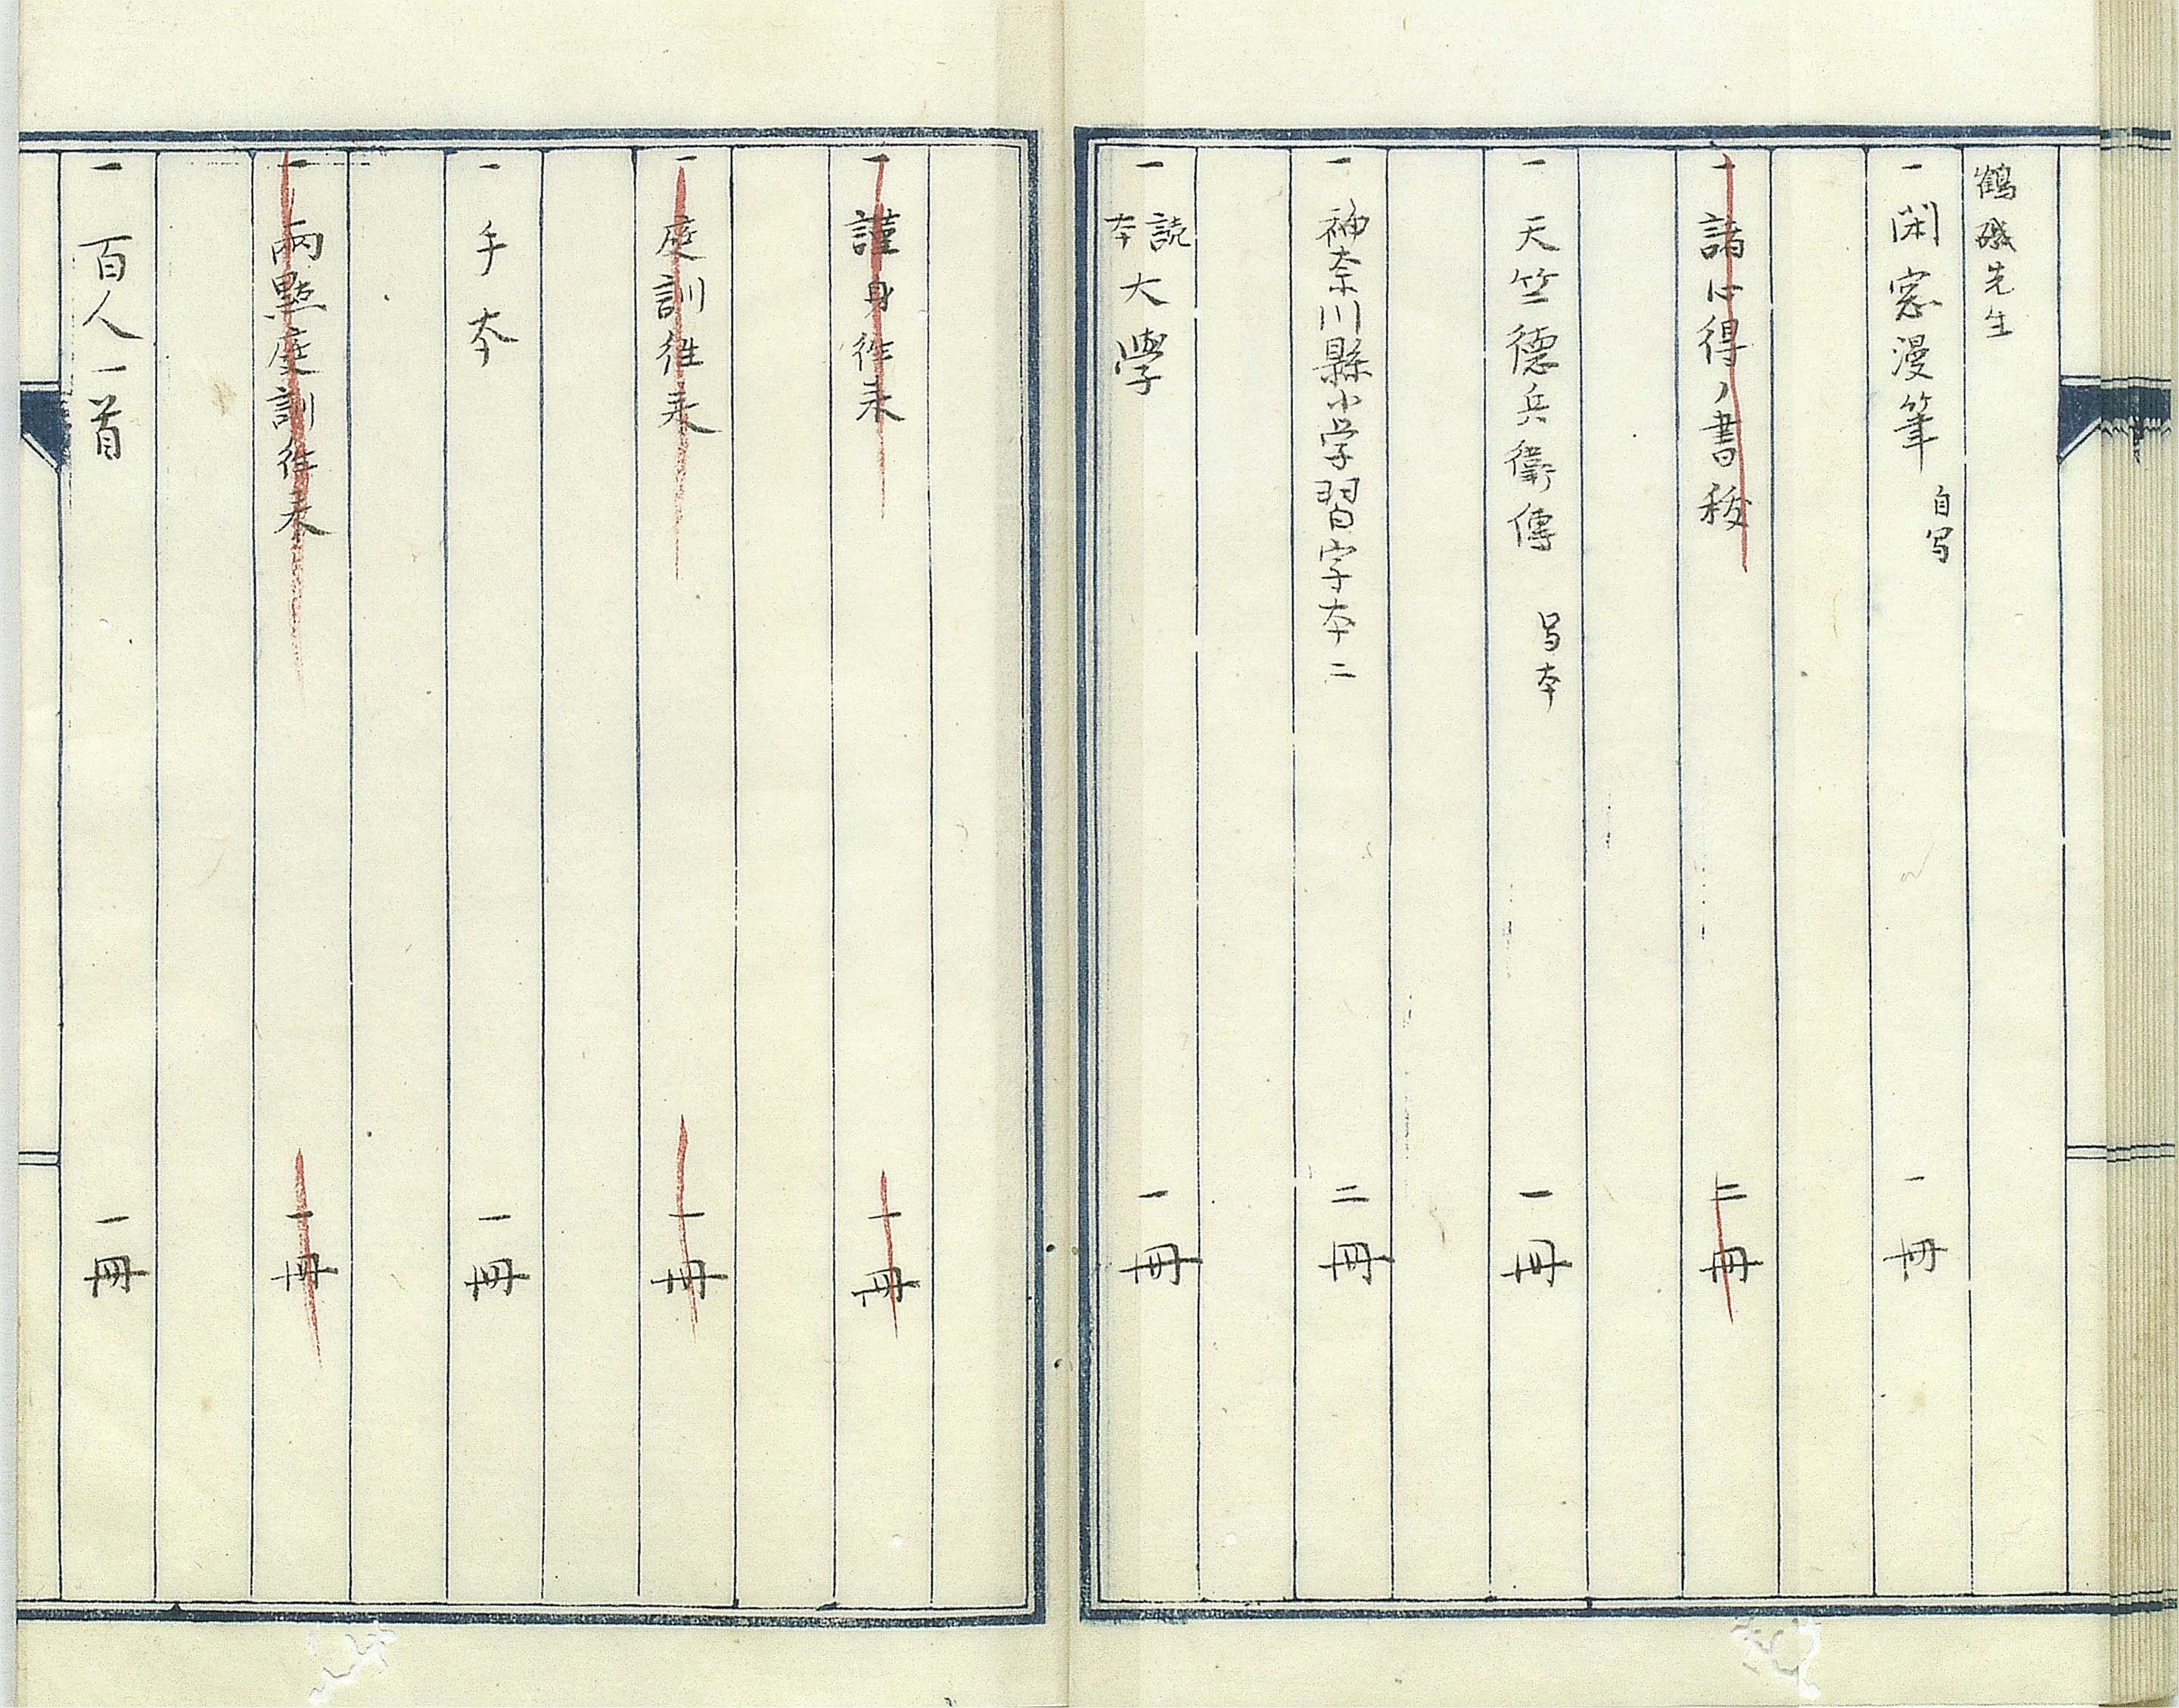 鶴磯先生
一 閑窓漫筆 自写 一冊
一 諸心得ノ書 二冊
一 天竺德兵衛傳 写本 一冊
一 神奈川縣小学習字本二 二冊
一 読本 大學 一冊
一 謹身往来 一冊
一 庭訓往来 一冊
一 手本 一冊
一 兩點庭訓往来 一冊
一 百人一首 一冊